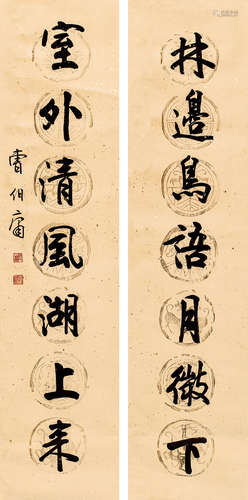 林邊鳥語月微下
室外清風湖上来
曹伯庸